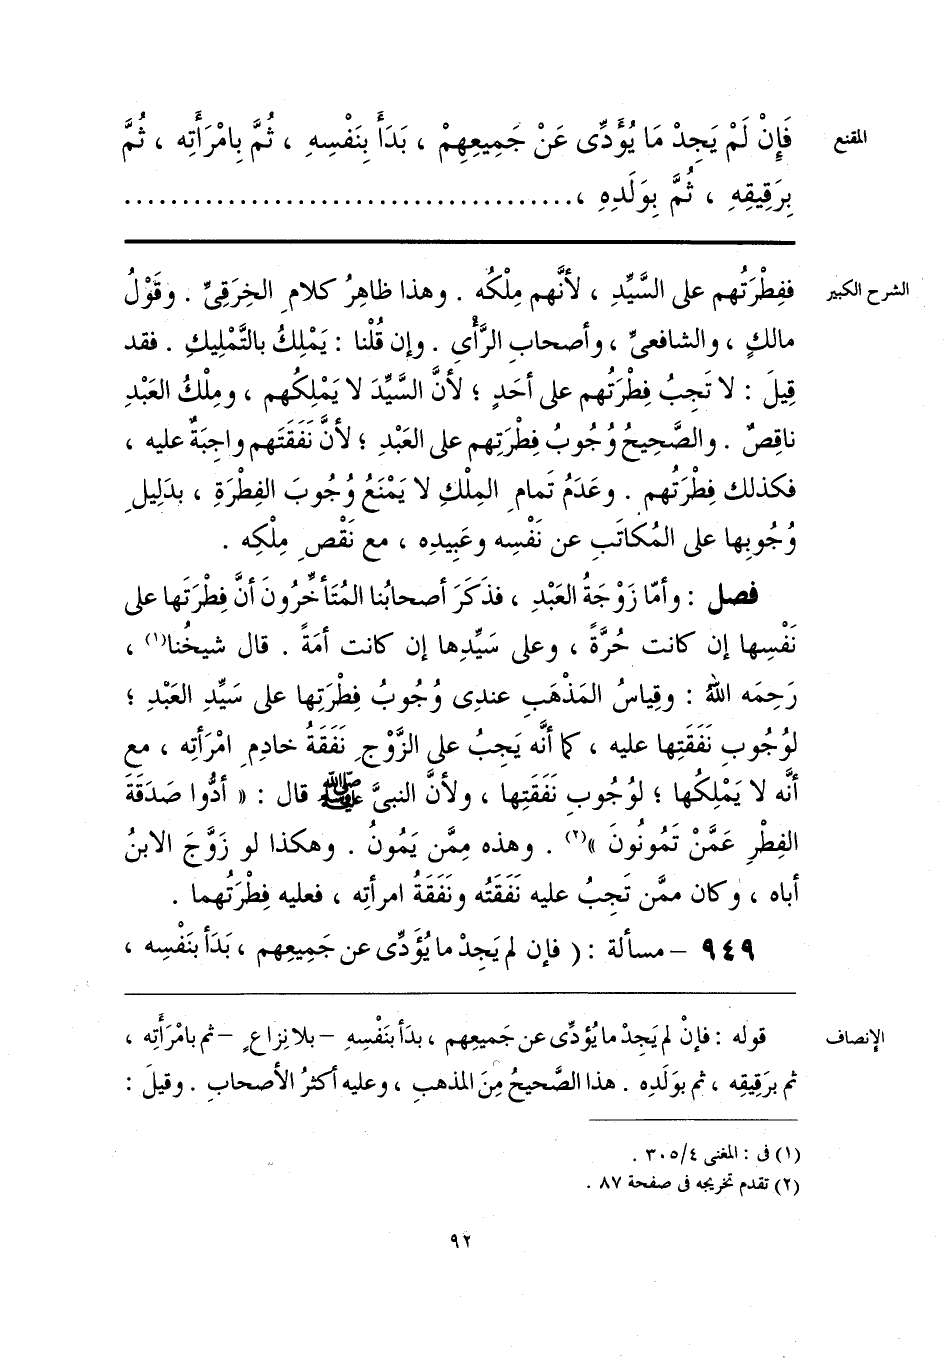 المقنع
فَإِنْ لَمْ يَجِدْ مَا يُؤَدِّى عَنْ جَمِيعِهِمْ ، بَدَأَ بِنَفْسِهِ ، ثُمَّ بِامْرَأَتِه ، ثُمَّ
بِرَقِيقِهِ ، ثُمَّ بِوَلَدِهِ ، ......................................
الشرح الكبير
ففِطْرَتُهم على السَّيِّدِ ، لأنَّهم مِلْكُه . وهذا ظاهِرُ كلامِ الخِرَقِىِّ . وقَوْلُ
مالكٍ ، والشافعىِّ ، وأصحابِ الرَّأْىِ . وإن قُلْنا : يَمْلِكُ بالتَّمْلِيكِ . فقد
قِيلَ : لا تَجِبُ فِطْرَتُهم على أحَدٍ ؛ لأنَّ السَّيِّدَ لا يَمْلِكُهم ، ومِلْكُ العَبْدِ
ناقِصٌ . والصَّحِيحُ وُجُوبُ فِطْرَتِهم على العَبْدِ ؛ لأنَّ نَفَقَتَهم واجِبَةٌ عليه ،
فكذلك فِطْرَتُهم . وعَدَمُ تَمامِ المِلْكِ لا يَمْنَعُ وُجُوبَ الفِطْرَةِ ، بدَلِيلِ
وُجُوبِها على المُكاتَبِ عن نَفْسِه وعَبِيدِه ، مع نَقْصِ مِلْكِه .
فصل : وأمّا زَوْجَةُ العَبْدِ ، فذَكَرَ أصحابُنا المُتَأخِّرُونَ أنَّ فِطْرَتَها على
نَفْسِها إن كانت حُرَّةً ، وعلى سَيِّدِها إن كانت أمَةً . قال شيخُنا(١) ،
رَحِمَه اللهُ : وقِياسُ المَذْهَبِ عندِى وُجُوبُ فِطْرَتِها على سَيِّدِ العَبْدِ ؛
لوُجُوبِ نَفَقَتِها عليه ، كما أنَّه يَجِبُ على الزَّوْجِ نَفَقَةُ خادِمِ امْرَأتِه ، مع
أنَّه لا يَمْلِكُها ؛ لوُجُوبِ نَفَقَتِها ، ولأنَّ النبىَّ ﷺ قال : « أدُّوا صَدَقَةَ
الفِطْرِ عَمَّنْ تَمُونُونَ »(٢) . وهذه مِمَّن يَمُونُ . وهكذا لو زَوَّجَ الابنُ
أباه ، وكان ممَّن تَجِبُ عليه نَفَقَتُه ونَفَقَةُ امرأتِه ، فعليه فِطْرَتُهما .
٩٤٩ – مسألة : ( فإن لم يَجِدْ ما يُؤَدِّى عن جَمِيعِهم ، بَدَأ بنَفْسِه ،
الإنصاف
قوله : فإنْ لم يَجِدْ ما يُؤدِّى عن جَمِيعِهم ، بدَأ بنَفْسِهِ – بلا نِزاعٍ – ثم بامْرَأَتِه ،
ثم برَقِيقِه ، ثم بوَلَدِه . هذا الصَّحيحُ مِنَ المذهبِ ، وعليه أكثرُ الأصحابِ . وقيلَ :
(١) فى : المغنى ٣٠٥/٤ .
(٢) تقدم تخريجه فى صفحة ٨٧ .
٩٢